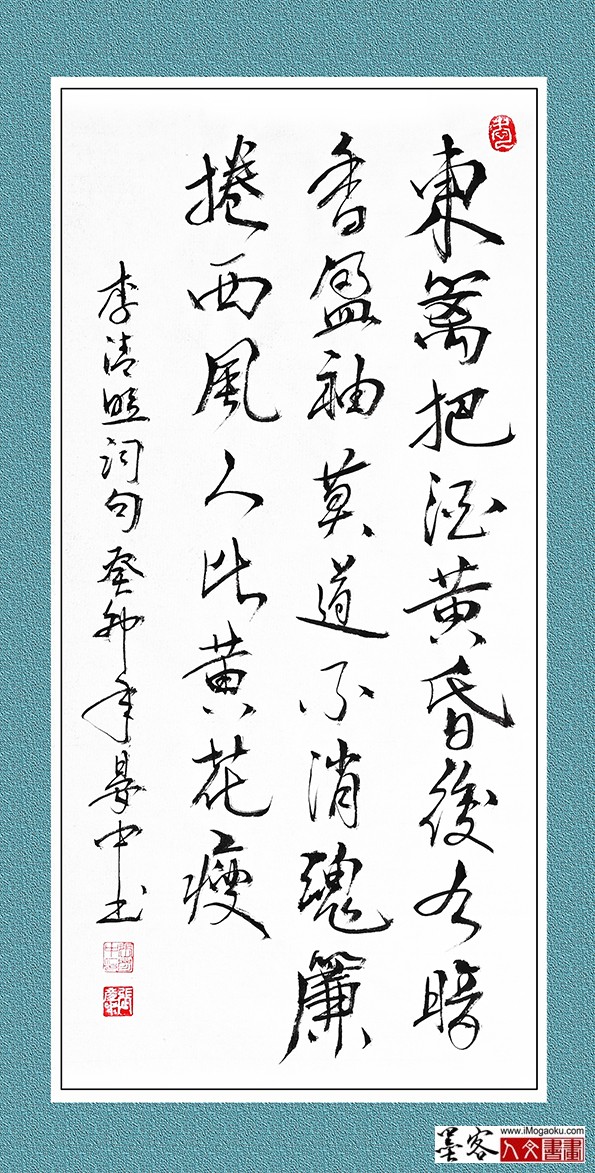 東篱把酒黄昏後有暗
香盈袖莫道不消魂簾
捲西風人比黄花瘦
李清照词句癸卯年晏中书
墨客
www.iMogaoku.com
人文書畫